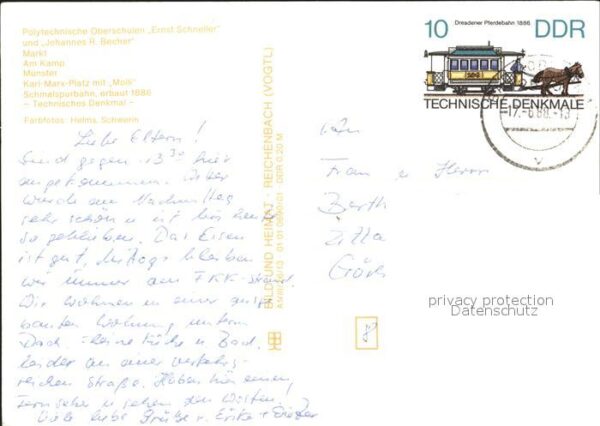 Polytechnische Oberschulen „Ernst Schneller"
und „Johannes R. Becher"
Markt
Am Kamp
Münster
Karl-Marx-Platz mit „Molli"
Schmalspurbahn, erbaut 1886
– Technisches Denkmal –
Farbfotos: Helms, Schwerin
Liebe Eltern!
Sind gegen 13³⁰ hier
angekommen. Wetter
wurde am Nachmittag
sehr schön u. ist bis heute
so geblieben. Das Essen
ist gut, mittags bleiben
wir immer am FKK-Strand
Wir wohnen in einer
bauten Wohnung unterm
Dach – kleine Küche u. Bad,
leider an einer verkehrs-
reichen Straße. Haben hier einen
Fernseher u. sehen den Westen!
Viele liebe Grüße v. Erika +
BILD UND HEIMAT · REICHENBACH (VOGTL)
DDR 0,20 M
10 Dresdener Pferdebahn 1886 DDR
TECHNISCHE DENKMALE
-17.-6.88.-13
Fam.
Frau u. Herrn
Berth
Görl
privacy protection
Datenschutz